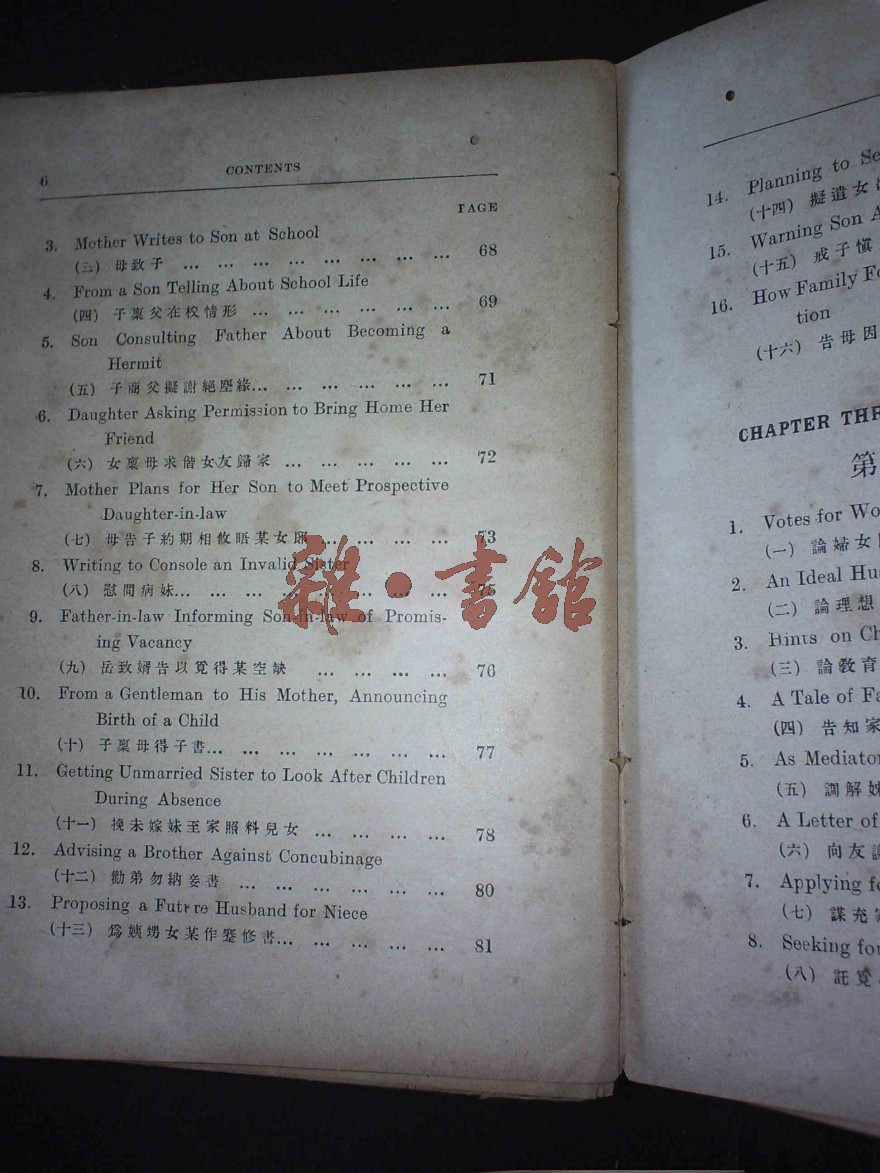 6
CONTENTS
PAGE
3. Mother Writes to Son at School
(三) 母致子 ... ... ... ... ... ... ... ... 68
4. From a Son Telling About School Life
(四) 子稟父在校情形 ... ... ... ... ... ... 69
5. Son Consulting Father About Becoming a
Hermit
(五) 子商父擬謝絕塵緣... ... ... ... ... ... 71
6. Daughter Asking Permission to Bring Home Her
Friend
(六) 女稟母求偕女友歸家 ... ... ... ... ... 72
7. Mother Plans for Her Son to Meet Prospective
Daughter-in-law
(七) 母告子約期相攸晤某女郎 ... ... ... ... 73
8. Writing to Console an Invalid Sister
(八) 慰問病妹... ... ... ... ... ... ... ... 75
9. Father-in-law Informing Son-in-law of Promis-
ing Vacancy
(九) 岳致婿告以覓得某空缺 ... ... ... ... 76
10. From a Gentleman to His Mother, Announcing
Birth of a Child
(十) 子稟母得子書... ... ... ... ... ... ... 77
11. Getting Unmarried Sister to Look After Children
During Absence
(十一) 挽未嫁妹至家照料兒女 ... ... ... ... 78
12. Advising a Brother Against Concubinage
(十二) 勸弟勿納妾書 ... ... ... ... ... ... 80
13. Proposing a Future Husband for Niece
(十三) 爲姨甥女某作蹇修書... ... ... ... ... 81
雜·書館
14. Planning to
(十四) 擬遣女
15. Warning Son
(十五) 戒子愼
16. How Family
tion
(十六) 告母因
CHAPTER
第
1. Votes for
(一) 論婦女
2. An Ideal
(二) 論理想
3. Hints on
(三) 論教育
4. A Tale of
(四) 告知家
5. As Mediator
(五) 調解姊
6. A Letter of
(六) 向友
7. Applying
(七) 謀充
8. Seeking for
(八) 託覓